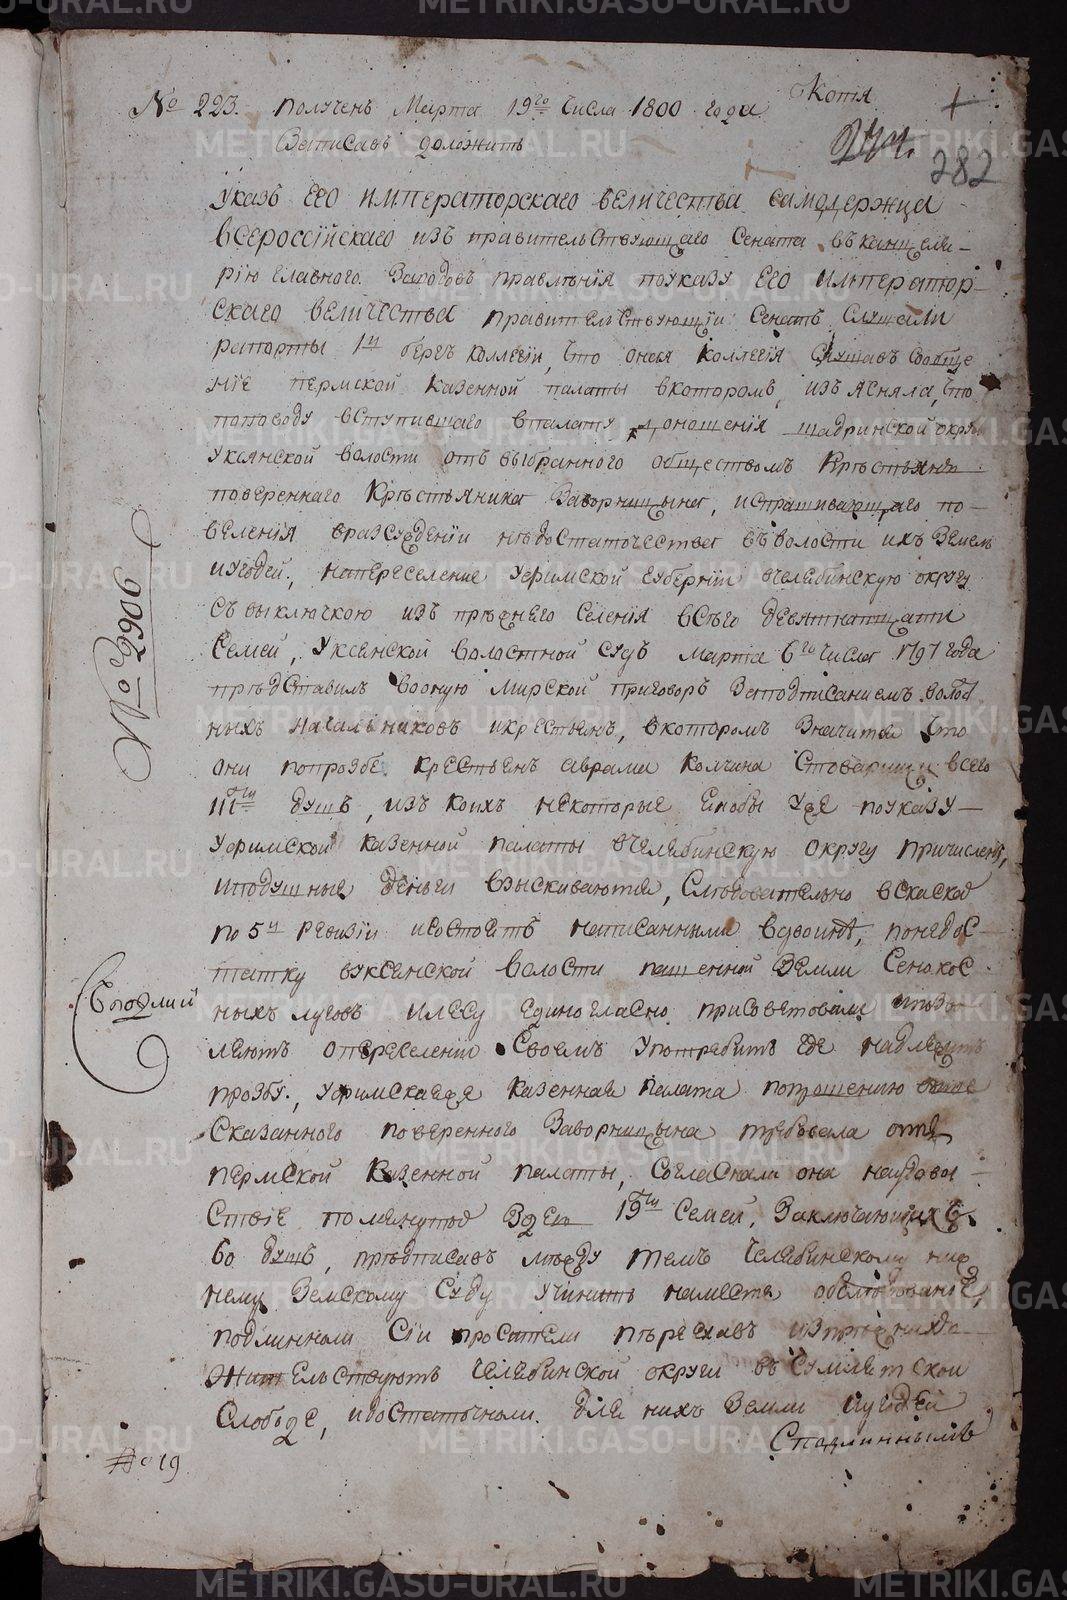 Копiя
№ 223. полученъ Марта 19го числа 1800 года
Записавъ доложить
282
Указъ ЕГО ИМПЕРАТОРСКАГО ВЕЛИЧЕСТВА САМОДЕРЖЦА
ВСЕРОССIЙСКАГО изъ правительствующаго Сената въ канцеля-
рiю главного Заводовъ правленiя по указу ЕГО ИМПЕРАТОР-
СКАГО ВЕЛИЧЕСТВА правительствующiи Сенатъ Слушали
рапорты 1й бергъ коллегiи, что оная коллегiя Слушавъ Сообще
нiе пермской казенной палаты вкоторомъ, изъясняла, что
поповоду вступившаго впалату доношенiя шадринской окру
Уксянской волости отъ выбранного обществомъ Крестьянъ
повереннаго Крестьянина Заворницына, испрашивающаго по-
веленiя вразсужденiи недостаточества въ волости ихъ земель
иугодей, напереселение Уфимской губернiи вчелябинскую округу
Съ выключкою изъ прежнего селенiя всего девятнатцати
Семей, Уксянской волостной судъ марта 6го числа 1797 года
представилъ воную Мирской приговоръ Заподписаниемъ волос
ныхъ начальниковъ икрестьянъ, вкоторомъ значится что
они попрозбе крестьянъ аврама колчина Стоварищи всего
душъ, изъ коихъ некоторые якобы уже поуказу
Уфимской казенной палаты вчелябинскую округу причислены,
иподушные деньги взыскиваются, Следовательно вскаской
по 5й ревизiи исостоятъ написанными вдвоине, понедос-
татку вуксянской волости пашенной земли Сенокос
ныхъ луговъ илесу единогласно присоветовали ипозво
ляютъ опереселении своемъ употребить где надлежитъ
прозбу, Уфимская же казенная палата попрошению
Сказанного поверенного Заворницына требовала отъ
пермской казенной палаты, Согласнали она наудоволь
ствiе помянутой 19ти Семей, Заключающихъ
60 душъ, предписавъ между темъ челябинскому ниж
нему Земскому Суду учинить наместе обследованiе,
подлинноли Сiи просители переехавъ изпрежнихъ
жительствуютъ челябинской округи въ
Слободе, идостаточноли для нихъ земли иугодей
Сподлиннымъ
№ 2906
№ 19